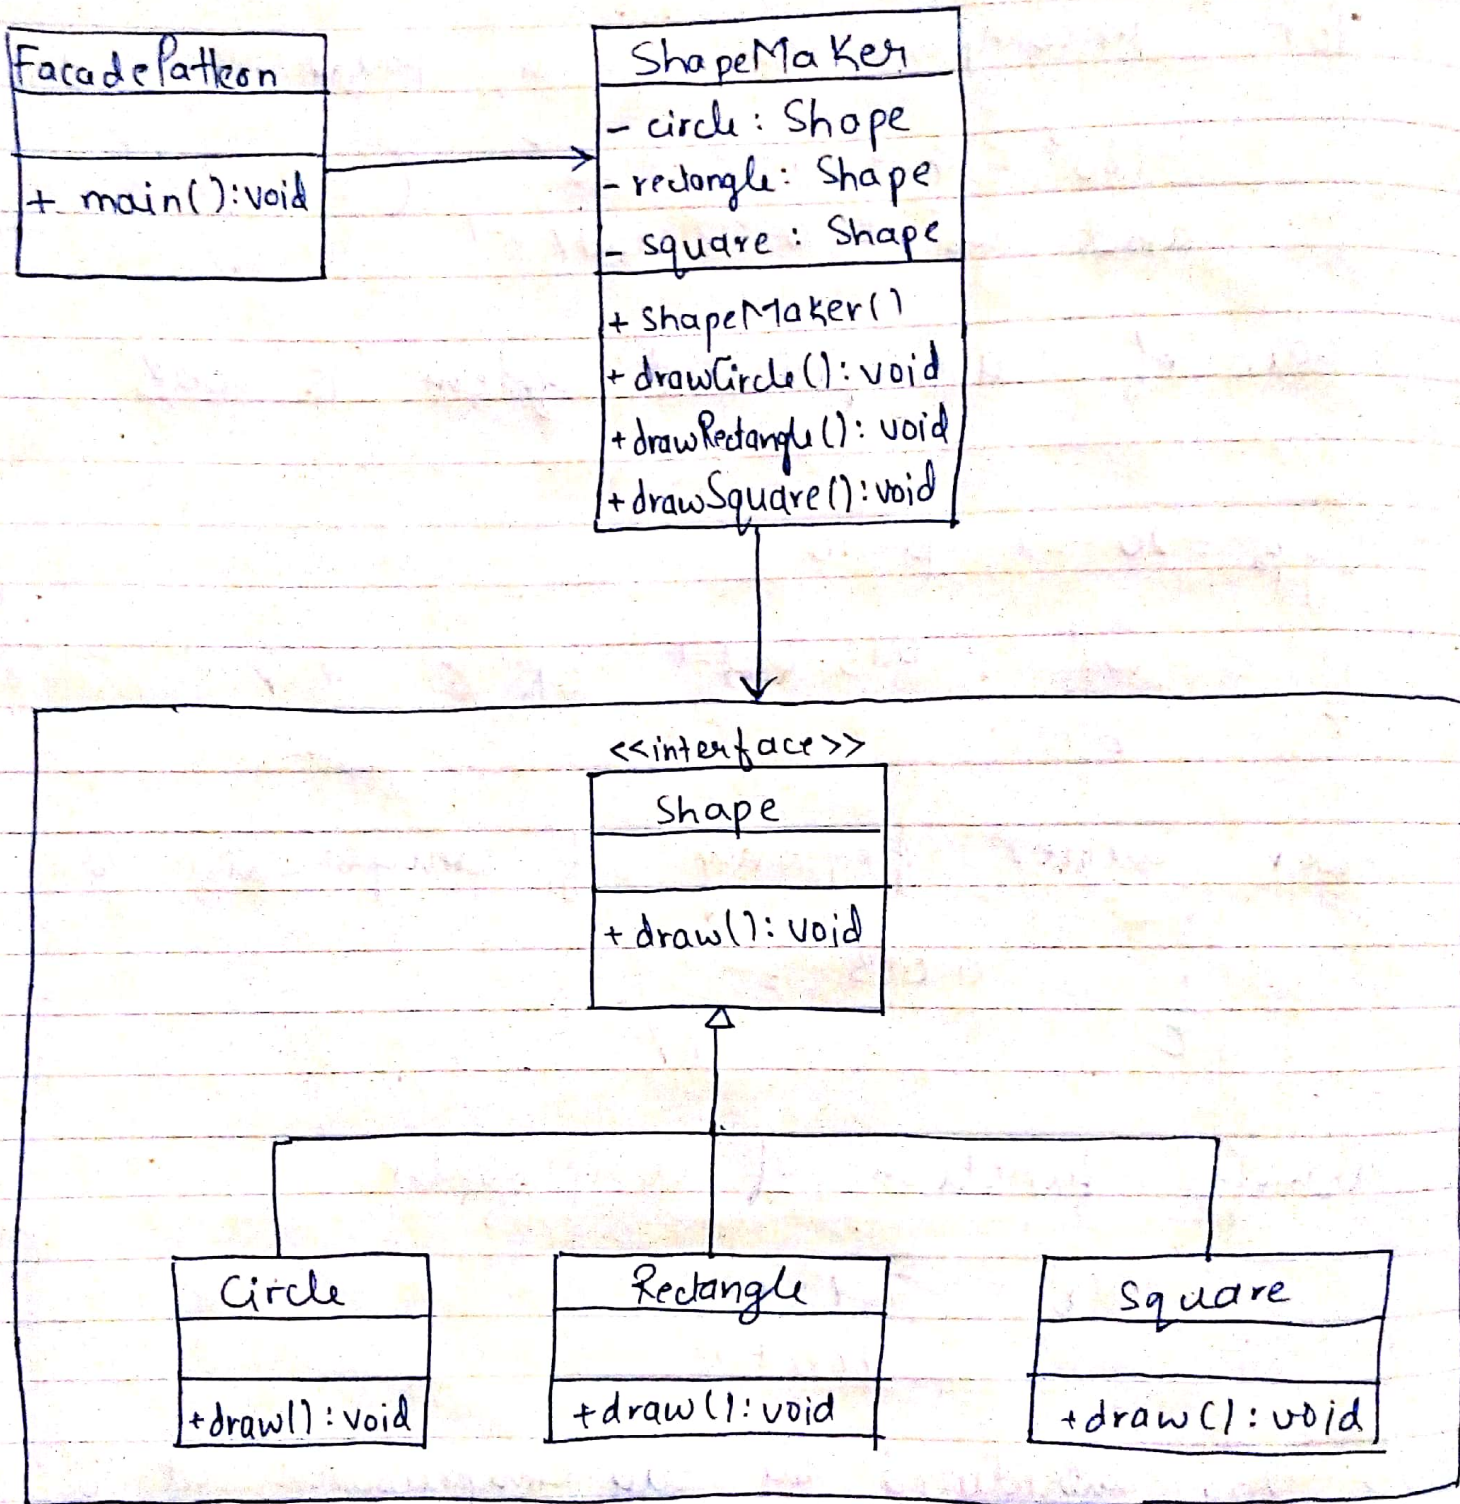 FacadePattern
+ main():void
ShapeMaker
- circle: Shape
- rectangle: Shape
- square: Shape
+ ShapeMaker()
+ drawCircle(): void
+ drawRectangle(): void
+ drawSquare(): void
<<interface>>
Shape
+ draw(): void
Circle
+draw(): void
Rectangle
+draw(): void
Square
+draw(): void